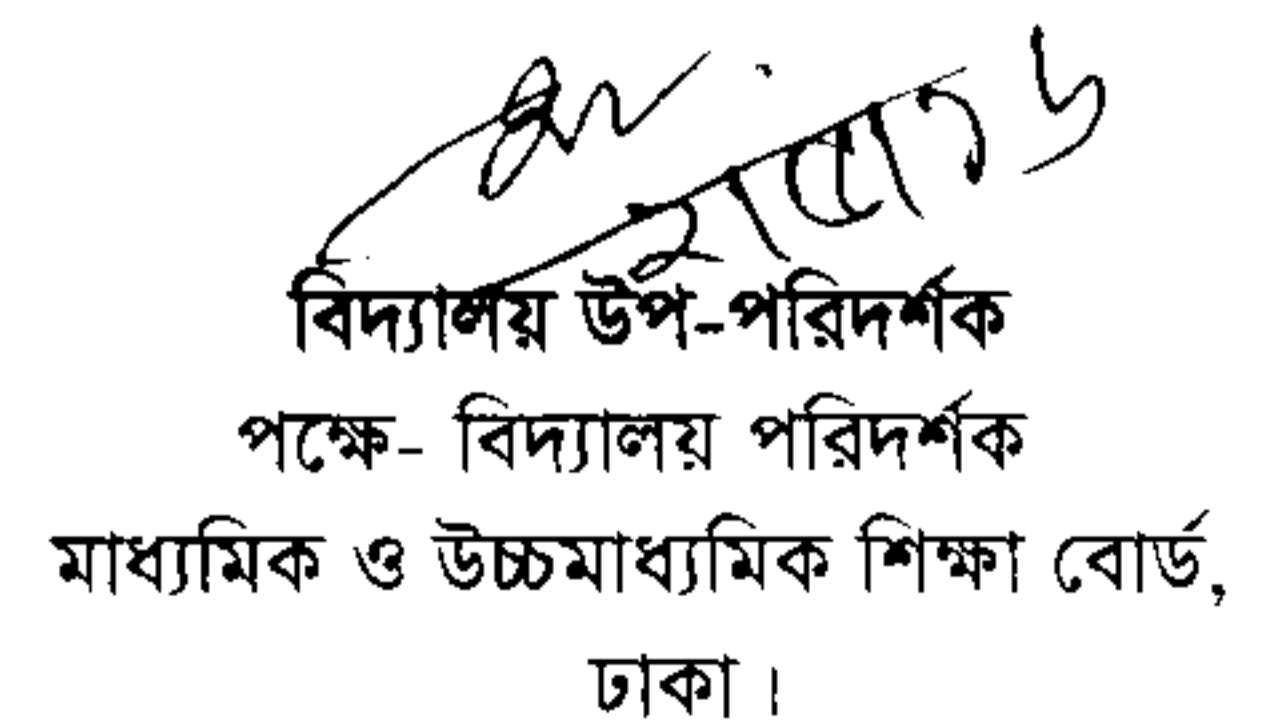 বিদ্যালয় উপ-পরিদর্শক
পক্ষে- বিদ্যালয় পরিদর্শক
মাধ্যমিক ও উচ্চমাধ্যমিক শিক্ষা বোর্ড,
ঢাকা ।